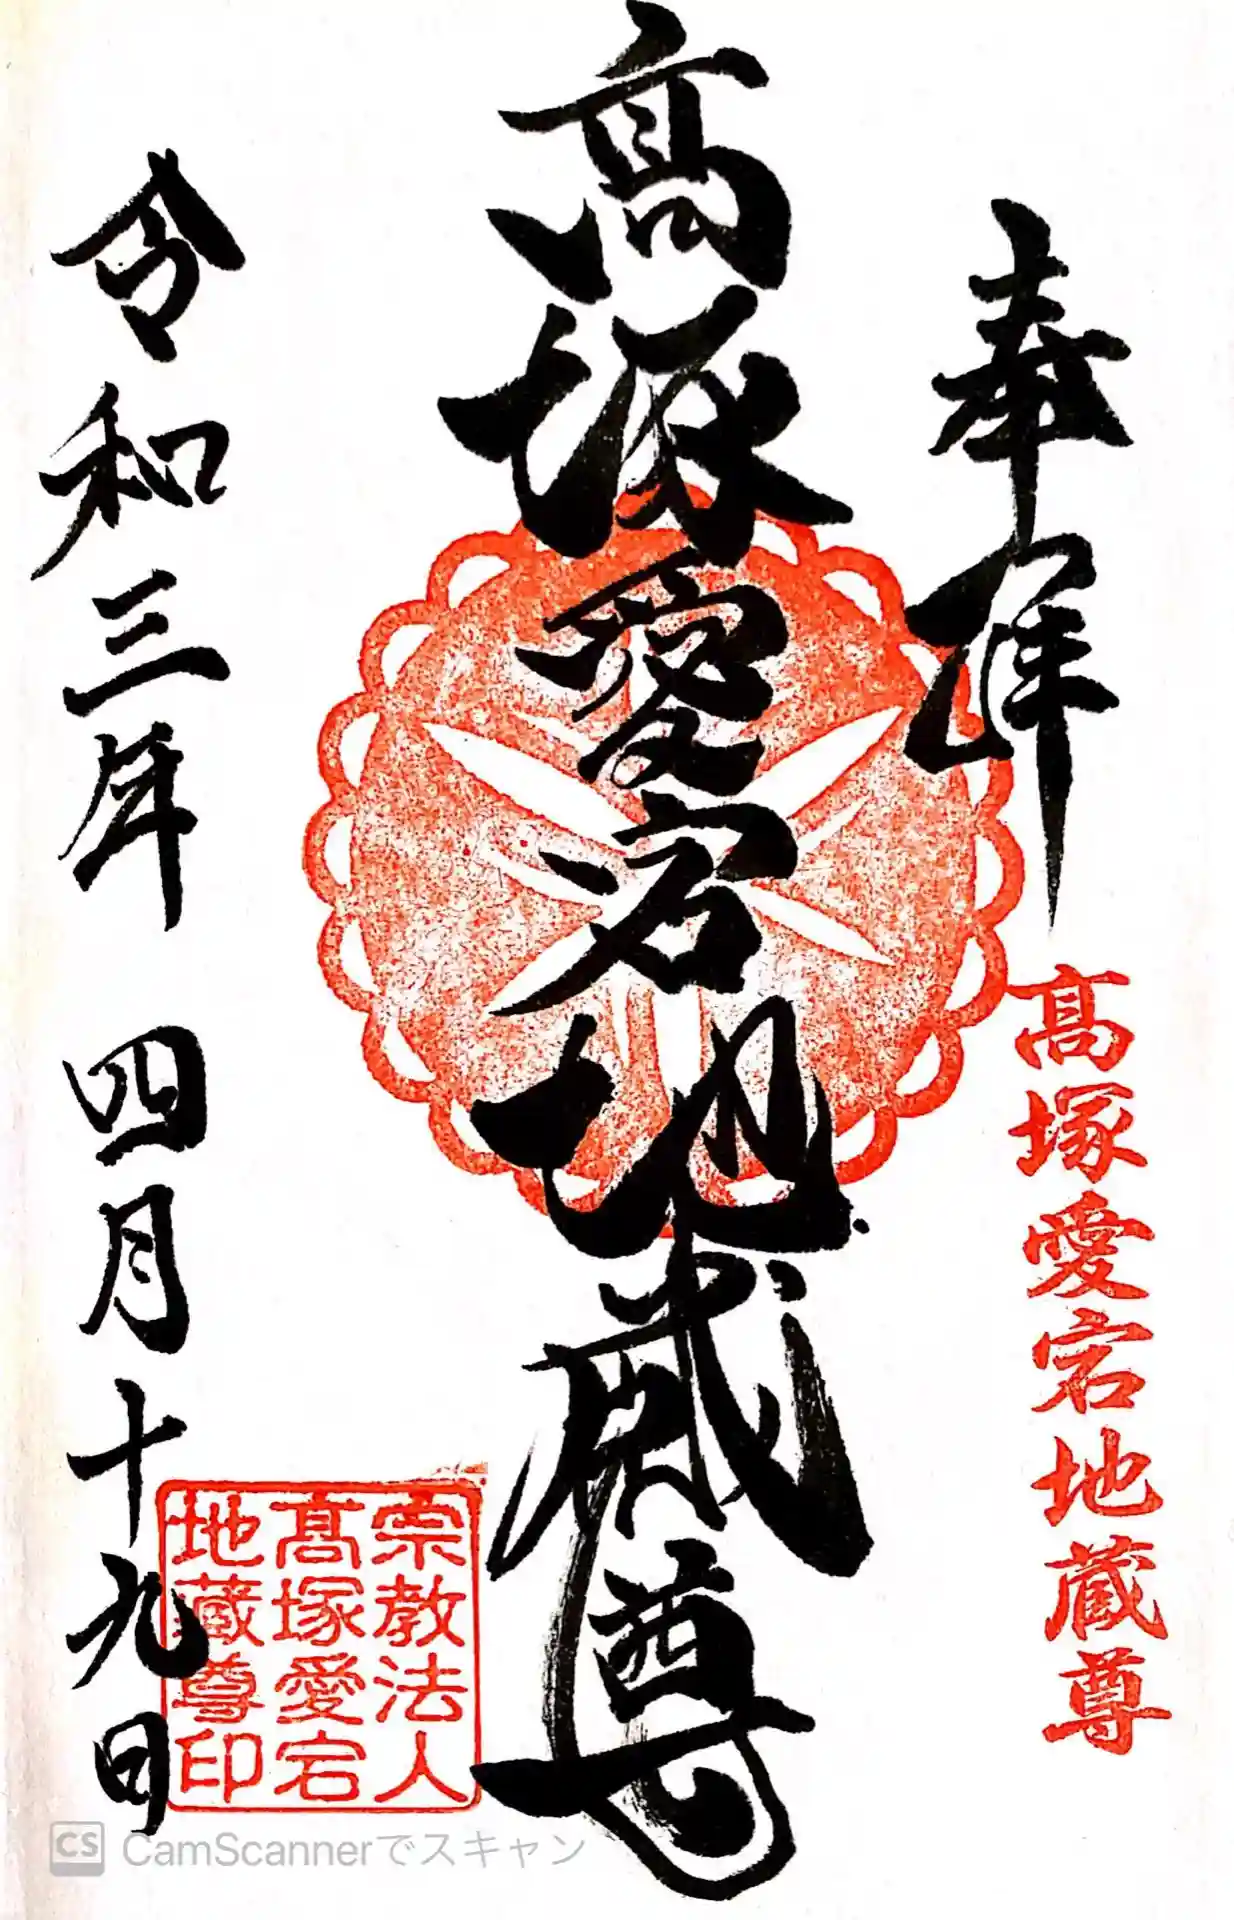 奉拝
髙塚愛宕地蔵尊
髙塚愛宕地蔵尊
令和三年 四月十九日
宗教法人
髙塚愛宕
地蔵尊印
CS CamScannerでスキャン